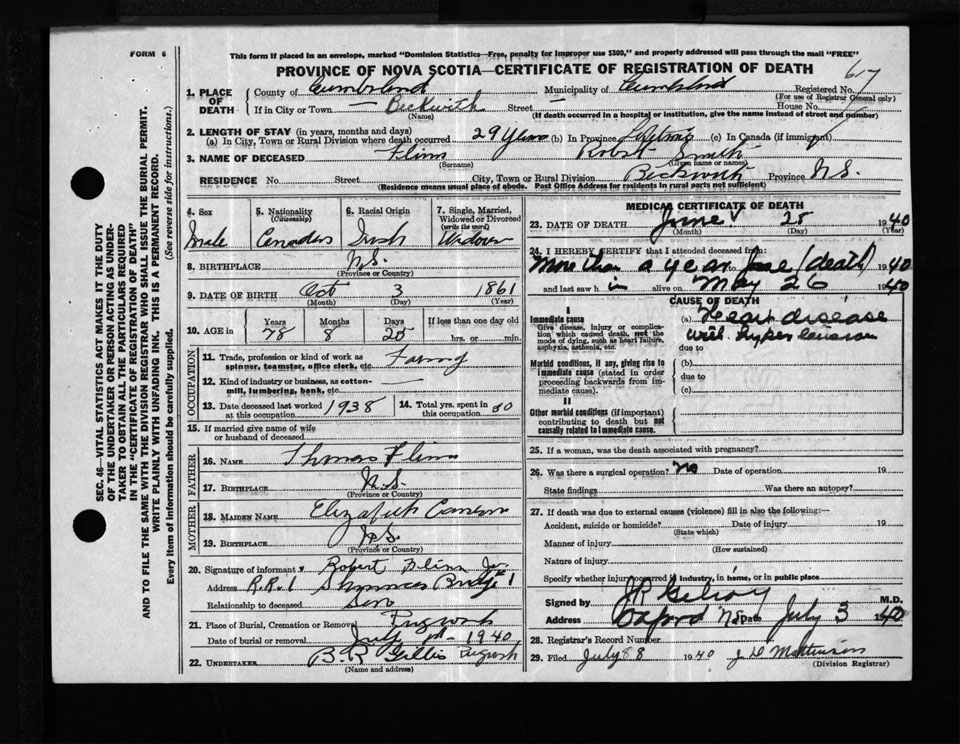 FORM 6
This form if placed in an envelope, marked "Dominion Statistics—Free, penalty for improper use $300," and properly addressed will pass through the mail "FREE"
PROVINCE OF NOVA SCOTIA—CERTIFICATE OF REGISTRATION OF DEATH
1. PLACE OF DEATH
County of Cumberland Municipality of Cumberland Registered No. 617
(For use of Registrar General only)
If in City or Town — Beckwith Street — House No.
(Name) (If death occurred in a hospital or institution, give the name instead of street and number)
2. LENGTH OF STAY (in years, months and days)
(a) In City, Town or Rural Division where death occurred 29 years (b) In Province Lifetime (c) In Canada (if immigrant)
3. NAME OF DECEASED Flinn Robert Smith
(Surname) (Given name or names)
RESIDENCE No. Street City, Town or Rural Division Beckwith Province N.S.
(Residence means usual place of abode. Post Office Address for residents in rural parts not sufficient)
4. Sex Male
5. Nationality (Citizenship) Canadian
6. Racial Origin Irish
7. Single, Married, Widowed or Divorced (write the word) Widower
8. BIRTHPLACE N.S.
(Province or Country)
9. DATE OF BIRTH Oct 3 1861
(Month) (Day) (Year)
10. AGE in Years Months Days If less than one day old
78 8 25 hrs. or min.
OCCUPATION
11. Trade, profession or kind of work as spinner, teamster, office clerk, etc. Farming
12. Kind of industry or business, as cotton-mill, lumbering, bank, etc. —
13. Date deceased last worked at this occupation 1938
14. Total yrs. spent in this occupation 50
15. If married give name of wife or husband of deceased
FATHER
16. NAME Thomas Flinn
17. BIRTHPLACE N.S.
(Province or Country)
MOTHER
18. MAIDEN NAME Elizabeth Cameron
19. BIRTHPLACE N.S.
(Province or Country)
20. Signature of informant Robert Flinn Jr.
Address R.R. 1 Shinimicas Bridge
Relationship to deceased Son
21. Place of Burial, Cremation or Removal Pugwash
Date of burial or removal July 1st 1940
22. UNDERTAKER B R Gillis Pugwash
MEDICAL CERTIFICATE OF DEATH
23. DATE OF DEATH June 28 1940
(Month) (Day) (Year)
24. I HEREBY CERTIFY that I attended deceased from:
More than a year to June (death) 1940
and last saw h im alive on May 26 1940
CAUSE OF DEATH
I
Immediate cause
Give disease, injury or complication which caused death, not the mode of dying, such as heart failure, asphyxia, asthenia, etc.
(a) Heart disease
with hypertension
due to
Morbid conditions, if any, giving rise to immediate cause (stated in order proceeding backwards from immediate cause).
(b)
due to
(c)
II
Other morbid conditions (if important) contributing to death but not causally related to immediate cause.
25. If a woman, was the death associated with pregnancy?
26. Was there a surgical operation? No Date of operation 19
State findings Was there an autopsy?
27. If death was due to external causes (violence) fill in also the following:—
Accident, suicide or homicide? Date of injury 19
(State which)
Manner of injury
(How sustained)
Nature of injury
Specify whether injury occurred in industry, in home, or in public place
Signed by M.D.
Address Oxford N.S. Date July 3 1940
28. Registrar's Record Number
29. Filed July 8 1940
(Division Registrar)
SEC. 46—VITAL STATISTICS ACT MAKES IT THE DUTY
OF THE UNDERTAKER OR PERSON ACTING AS UNDER-
TAKER TO OBTAIN ALL THE PARTICULARS REQUIRED
IN THE "CERTIFICATE OF REGISTRATION OF DEATH"
AND TO FILE THE SAME WITH THE DIVISION REGISTRAR WHO SHALL ISSUE THE BURIAL PERMIT.
WRITE PLAINLY WITH UNFADING INK. THIS IS A PERMANENT RECORD.
Every item of information should be carefully supplied. (See reverse side for instructions.)